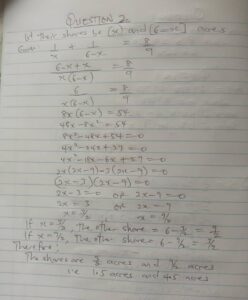 QUESTION 2
let their shares be [x] and [6-x] acres
Given 1/x + 1/6-x = 8/9
6-x+x / x(6-x) = 8/9
6 / x(6-x) = 8/9
8x(6-x) = 54
48x-8x² = 54
8x²-48x+54=0
4x²-24x+27=0
4x²-18x-6x+27=0
2x(2x-9)-3(2x-9)=0
(2x-3)(2x-9)=0
2x-3=0 or 2x-9=0
2x=3 or 2x=9
x=3/2 x=9/2
If x=3/2, The other share = 6-3/2 = 9/2
If x=9/2, The other share = 6-9/2 = 3/2
Therefore,
The shares are 3/2 acres and 9/2 acres
i.e 1.5 acres and 4.5 acres